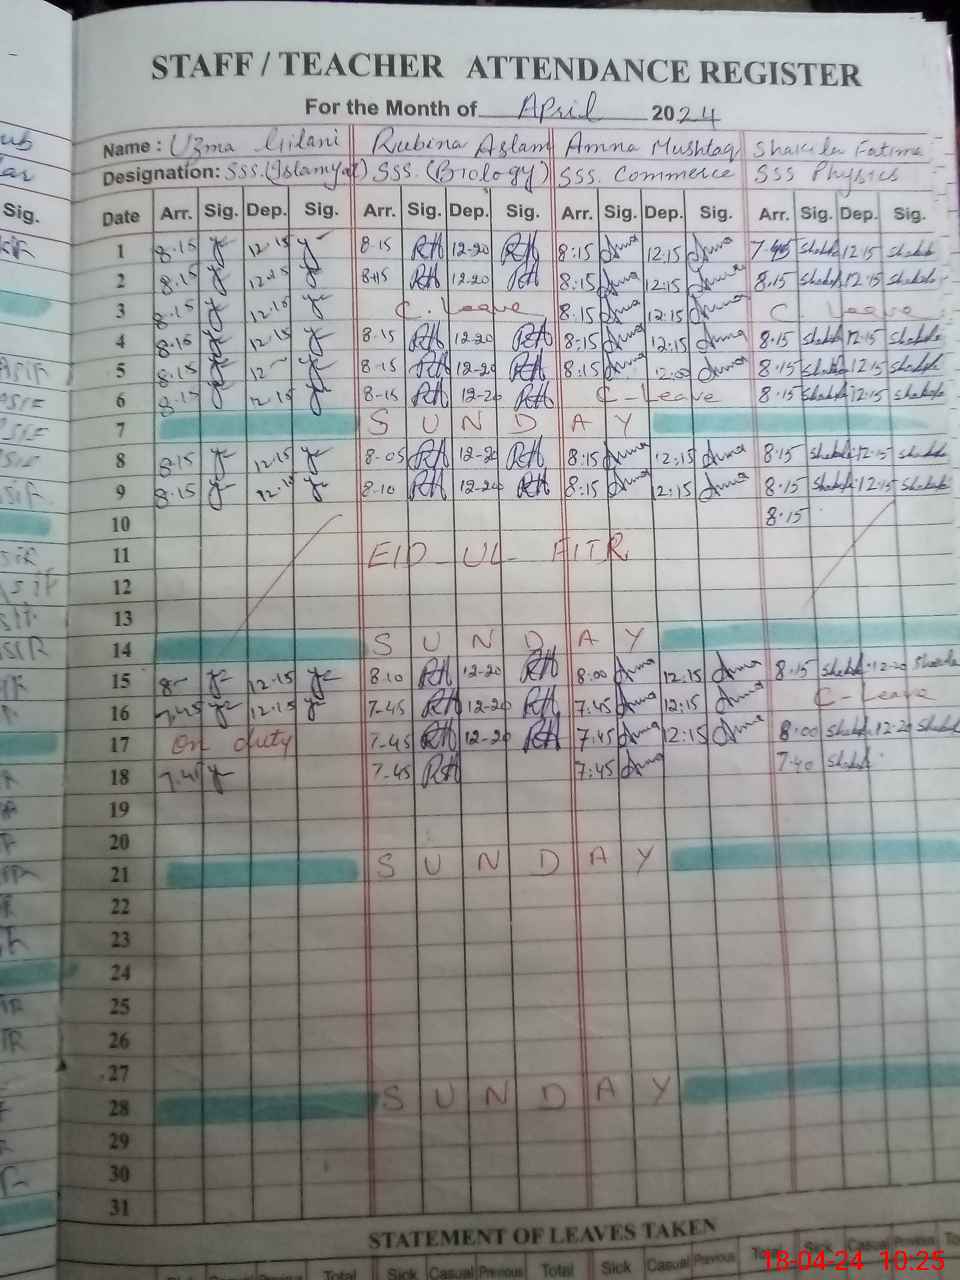 STAFF / TEACHER ATTENDANCE REGISTER
For the Month of April 2024
Name : Uzma Gilani Rubina Aslam Amna Mushtaq Shakila Fatima
Designation: SSS.(Islamyat) SSS. (Biology) SSS. Commerce SSS Physics
Date Arr. Sig. Dep. Sig. Arr. Sig. Dep. Sig. Arr. Sig. Dep. Sig. Arr. Sig. Dep. Sig.
1 8.15 12.15 8-15 RA 12-20 RA 8:15 Amna 12:15 Amna 7-45 Shakila 12.15 Shakila
2 8.15 12.15 8.15 RA 12.20 RA 8:15 Amna 12:15 Amna 8.15 Shakila 12.15 Shakila
3 8.15 12.15 C. Leave 8:15 Amna 12:15 Amna C. Leave
4 8.15 12.15 8-15 RA 12-20 RA 8:15 Amna 12:15 Amna 8.15 Shakila 12.15 Shakila
5 8.15 12- 8-15 RA 12-20 RA 8:15 Amna 12:00 Amna 8.15 Shakila 12.15 Shakila
6 12.15 8-15 RA 12-20 RA C-Leave 8.15 Shakila 12.15 Shakila
7 SUNDAY
8 8.15 12.15 8-05 RA 12-20 RA 8:15 Amna 12:15 Amna 8.15 Shakila 12.15 Shakila
9 8.15 12.15 8-10 RA 12-20 RA 8:15 Amna 12:15 Amna 8.15 Shakila 12.15 Shakila
10 8.15
11 EID UL FITR
12
13
14 SUNDAY
15 8- 12.15 8.10 RA 12-20 RA 8:00 Amna 12:15 Amna 8.15 Shakila 12-20 Shakila
16 7.45 12.15 7-45 RA 12-20 RA 7:45 Amna 12:15 Amna C-Leave
17 On duty 7-45 RA 12-20 RA 7:45 Amna 12:15 Amna 8.00 Shakila 12-20 Shakila
18 7.45 7-45 RA 7:45 Amna 7.40 Shakila
19
20
21 SUNDAY
22
23
24
25
26
27
28 SUNDAY
29
30
31
STATEMENT OF LEAVES TAKEN
Total Sick Casual Previous Total Sick Casual Previous Total Sick Casual Previous
18-04-24 10:25